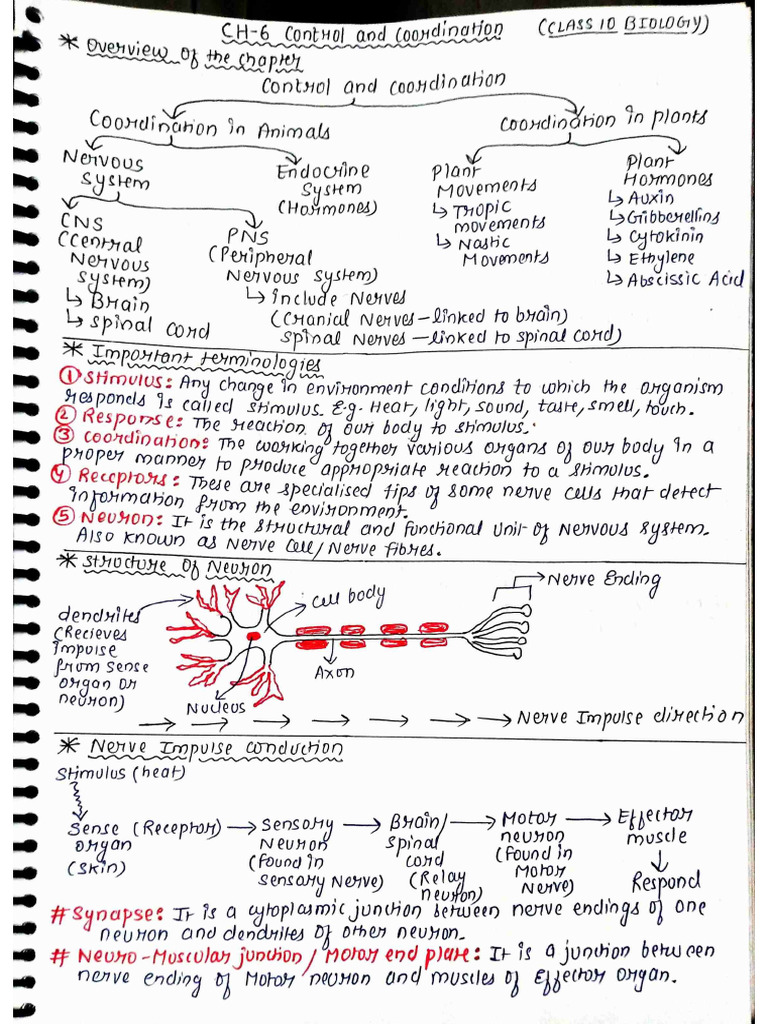 CH-6 Control and Coordination (CLASS 10 BIOLOGY)
* Overview of the chapter
Control and Coordination
Coordination in Animals
Coordination in plants
Nervous System
Endocrine System (Hormones)
Plant Movements
↳ Tropic movements
↳ Nastic Movements
Plant Hormones
↳ Auxin
↳ Gibberellins
↳ Cytokinin
↳ Ethylene
↳ Abscissic Acid
CNS
(Central
Nervous
System)
↳ Brain
↳ Spinal Cord
PNS
(Peripheral
Nervous System)
↳ include Nerves
(Cranial Nerves – linked to brain)
Spinal Nerves – linked to spinal cord)
* Important terminologies
① Stimulus: Any change in environment conditions to which the organism
responds is called stimulus. E.g. Heat, light, sound, taste, smell, touch.
② Response: The reaction of our body to stimulus.
③ Coordination: The working together various organs of our body in a
proper manner to produce appropriate reaction to a stimulus.
④ Receptors: These are specialised tips of some nerve cells that detect
information from the environment.
⑤ Neuron: It is the structural and functional unit of Nervous System.
Also known as Nerve Cell/Nerve fibres.
* Structure of Neuron
dendrites
(Recieves
impulse
from sense
organ or
neuron)
Cell body
Nerve Ending
Axon
Nucleus
→ → → → → → → Nerve Impulse direction
* Nerve Impulse conduction
Stimulus (heat)
Sense (Receptor)
organ
(Skin)
→ Sensory
Neuron
(found in
Sensory Nerve)
→ Brain/
spinal
cord
(Relay
neuron)
→ Motor
neuron
(found in
Motor
Nerve)
→ Effector
muscle
↓
Respond
# Synapse: It is a cytoplasmic junction between nerve endings of one
neuron and dendrites of other neuron.
# Neuro-Muscular junction / Motor end plate: It is a junction between
nerve ending of Motor neuron and muscles of Effector organ.